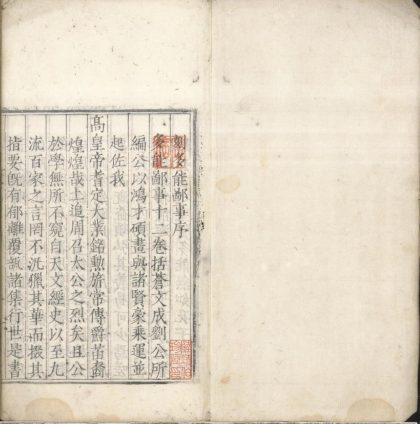 刻多能鄙事序
多能鄙事十二卷括蒼文成劉公所
編公以鴻才碩畫與諸賢豪乘運並
起佐我
高皇帝耆定大業銘勲旂常傳爵苗裔
煌煌哉上追周召太公之烈矣且公
於學無所不窺自天文經史以至九
流百家之言罔不汎獵其華而掇其
㫖要旣有郁離覆瓿諸集行世是書